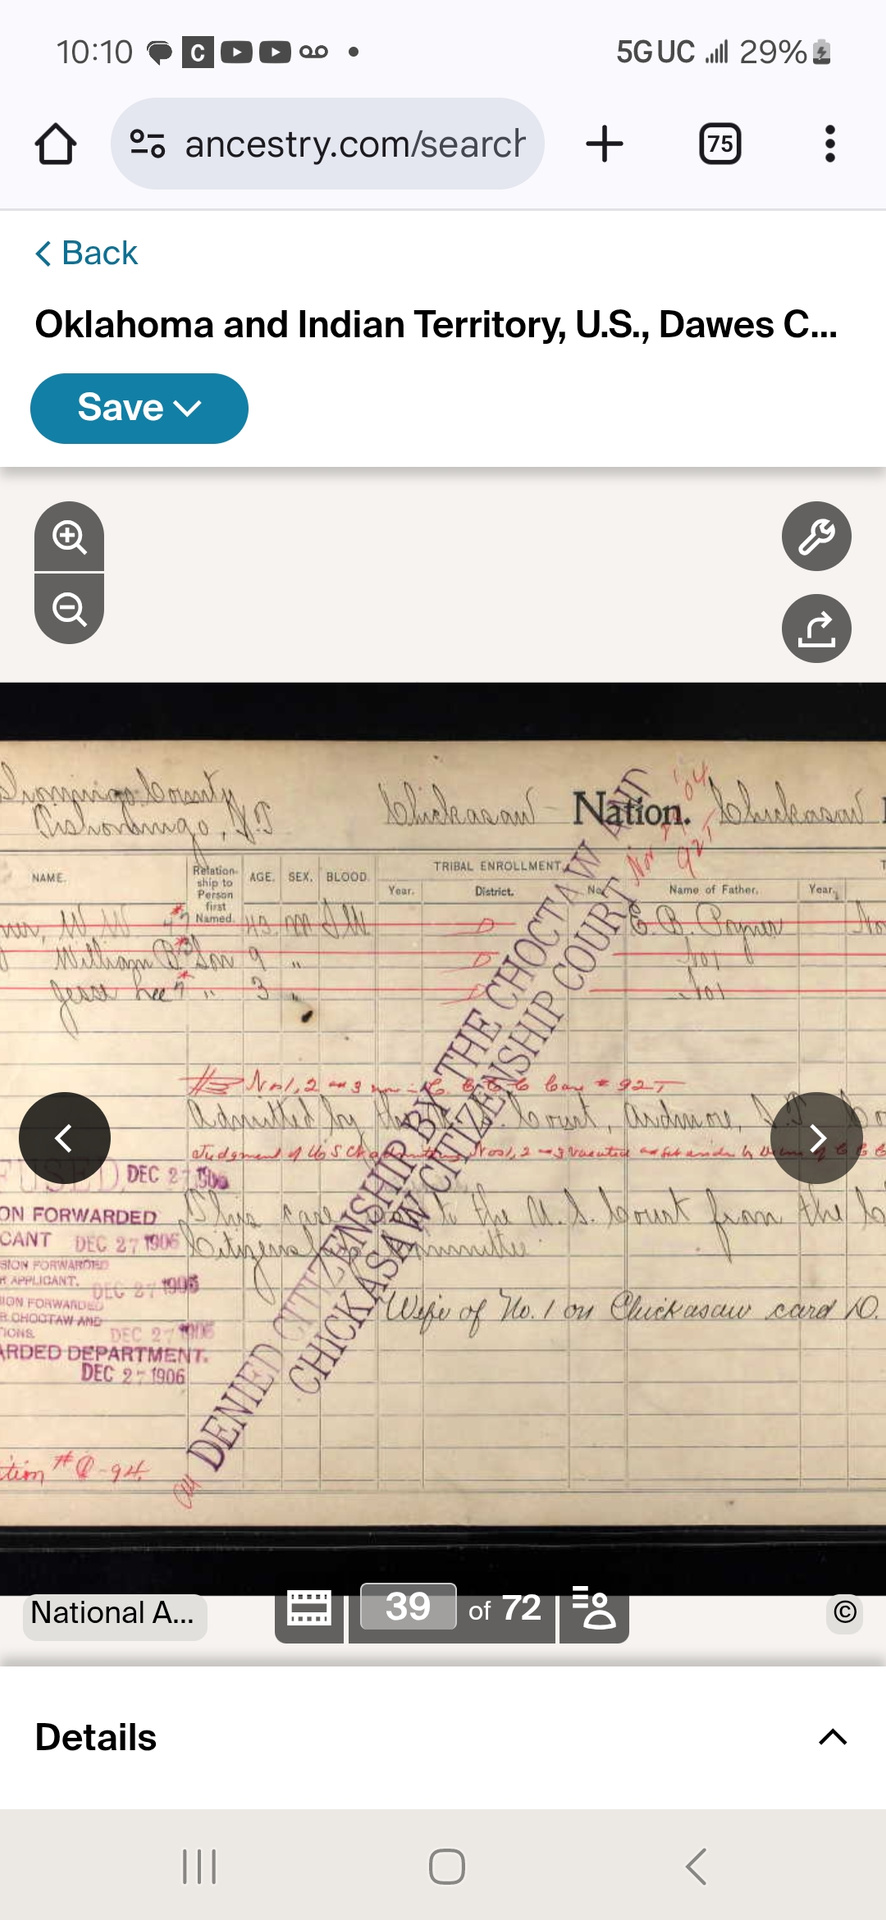 10:10
5G UC 29%
ancestry.com/search
75
Back
Oklahoma and Indian Territory, U.S., Dawes C...
Save
County
Tishomingo, I.T
Chickasaw Nation. Chickasaw
Nov '04
92T
NAME.
Relation-
ship to
Person
first
Named.
AGE. SEX. BLOOD.
TRIBAL ENROLLMENT.
Year. District. No.
Name of Father. Year.
W. W. 42 M I W D E. B. Poyner
William Son 9 " D No 1
Jesse Lee " 3 " No 1
Nos 1, 2 and 3 now in C. C. C. C. Case # 92T
Admitted by the U.S. Court, Ardmore, I.T.
Judgment of U S Ct admitting Nos 1, 2 and 3 vacated and set aside by
This case to the U.S. Court from the
Citizenship Committee
Wife of No. 1 on Chickasaw card D.
DENIED CITIZENSHIP BY THE CHOCTAW AND
CHICKASAW CITIZENSHIP COURT
FUSED DEC 27 1906
ON FORWARDED
CANT DEC 27 1906
SION FORWARDED
R APPLICANT. DEC 27 1906
ION FORWARDED
R CHOCTAW AND
TIONS. DEC 27 1906
ARDED DEPARTMENT.
DEC 27 1906
tion # C-94
All
National A...
39 of 72
©
Details